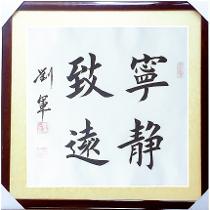 寧静
致遠
劉軍